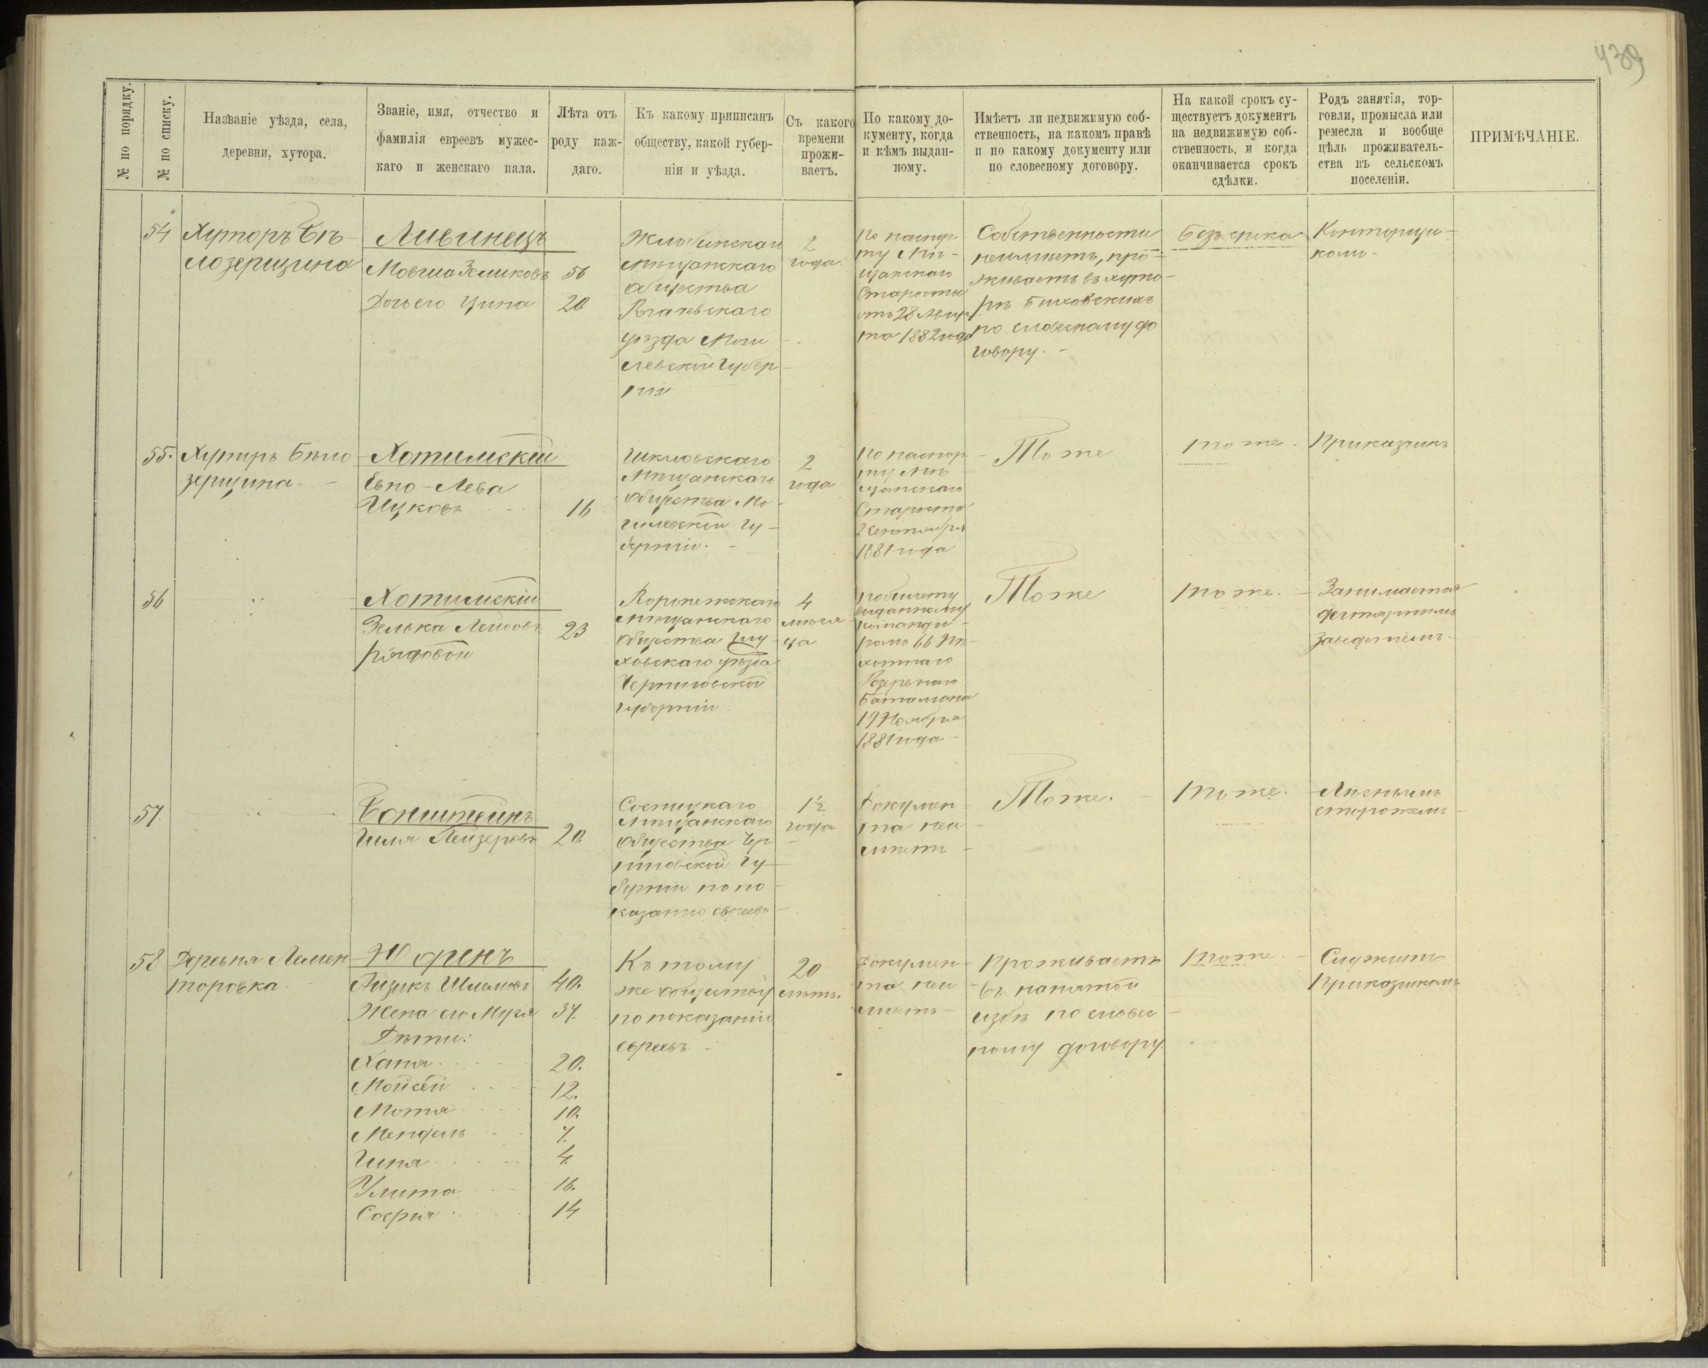 439
№ по порядку.
№ по списку.
Названіе уѣзда, села,
деревни, хутора.
Званіе, имя, отчество и
фамилія евреевъ мужес-
каго и женскаго пала.
Лѣта отъ
роду каж-
даго.
Къ какому приписанъ
обществу, какой губер-
ніи и уѣзда.
Съ какого
времени
прожи-
ваетъ.
По какому до-
кументу, когда
и кѣмъ выдан-
ному.
Имѣетъ ли недвижимую соб-
ственность, на какомъ правѣ
и по какому документу или
по словесному договору.
На какой срокъ су-
ществуетъ документъ
на недвижимую соб-
ственность, и когда
оканчивается срокъ
сдѣлки.
Родъ занятія, тор-
говли, промысла или
ремесла и вообще
цѣль проживатель-
ства въ сельскомъ
поселеніи.
ПРИМѢЧАНІЕ.
54
Хуторъ Бѣ-
лозерщина
Ливинецъ
Мовша Зеликовъ 56
Дочь его Ципа 20
Жлобинскаго
Мѣщанскаго
общества
Рогачевскаго
уѣзда Моги
левской Губер
ніи
2
года
По паспор-
ту Мѣ-
щанскаго
Старосты
отъ 28 Авгус
та 1882 года
Собственности
неимѣетъ, про-
живаетъ въ хуто-
рѣ Быховскихъ
по словесному до
говору. -
Безъ срока
Конторщи-
комъ -
55.
Хуторъ Бѣло
зерщина. -
Хотимскій
Лева
Ицковъ 16
Шкловскаго
Мѣщанскаго
Общества Мо-
гилевской Гу-
берніи. -
2
года
По паспор-
ту Мѣ-
щанскаго
Старосты
2 Сентября
1881 года
Тоже
тоже.
Прикащикъ
56
Хотимскій
Зелька Лейбовъ 23
рядовой
Мѣщанскаго
Общества Глу-
ховскаго уѣзда
Черниговской
губерніи
4
мѣся-
ца
По билету
выданному
команди-
ромъ 66 Пѣ-
хотнаго
Резервнаго
Баталіона
19 Ноября
1881 года -
Тоже
тоже.
Занимается
дегтярнымъ
заводомъ -
57
20
Сосницкаго
Мѣщанскаго
Общества Чер
ниговской Гу-
берніи по по-
казанію евреевъ
1½
года
Докумен-
та неи
мѣетъ
Тоже.
тоже.
Лѣснымъ
сторожемъ
58
Деревня Лемен
торовка.
Юринъ
Айзикъ Шлемовъ 40.
Жена его Муся 37.
Дѣти:
Хана 20.
Мойсей 12.
Мотя 10.
Мендель 7.
Гиня 4
Улита 16.
Софія 14
Къ тому
же обществу
по показанію
евреевъ -
20
лѣтъ.
Докумен-
та неи
мѣетъ -
Проживаетъ
въ нанятой
избѣ по словес
ному договору
тоже.
Служитъ
Прикащикомъ